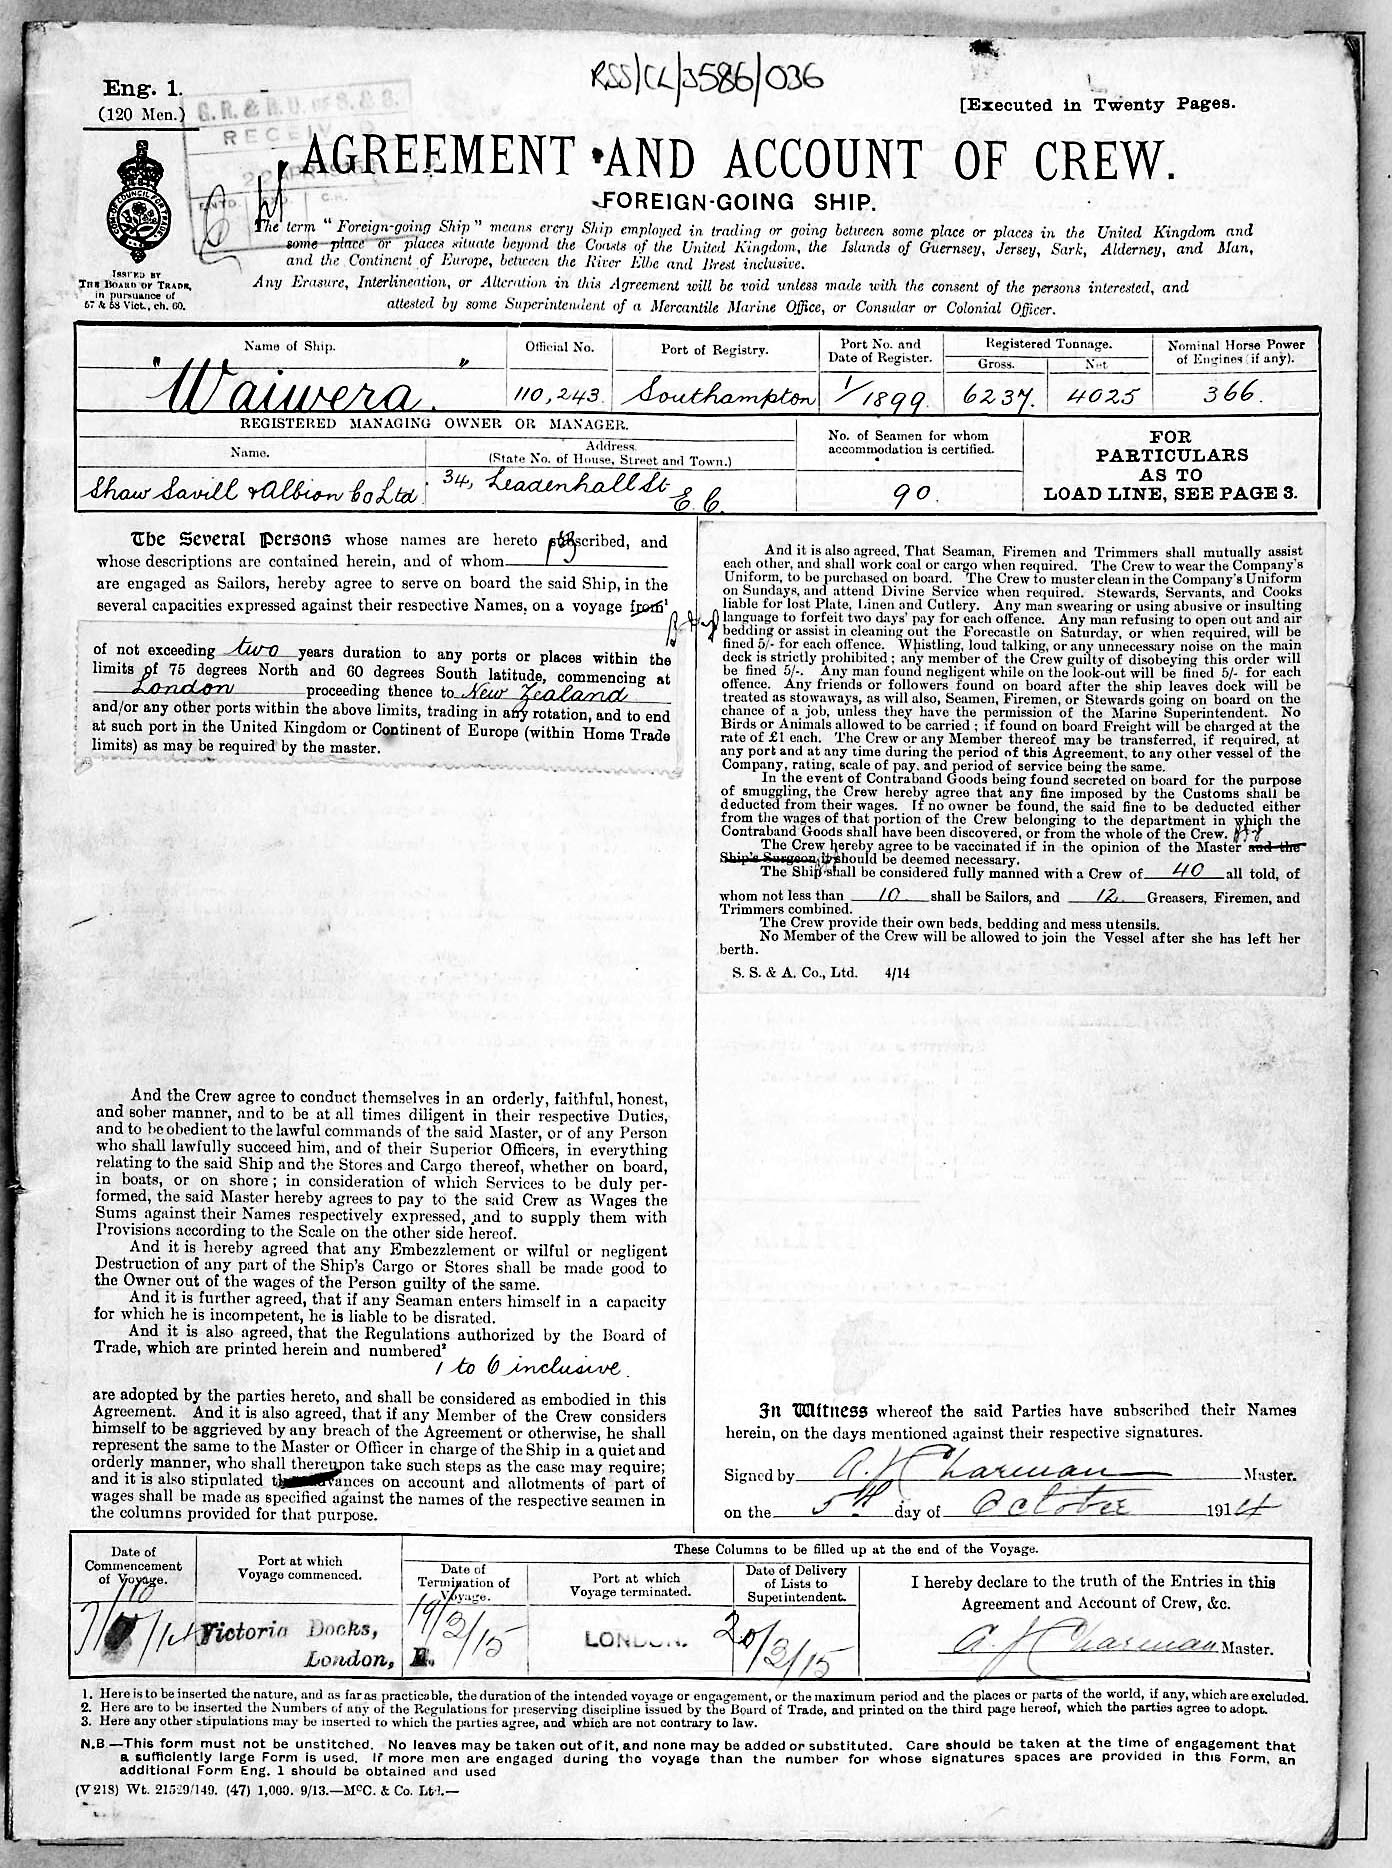 RSS/CL/3586/036
Eng. 1.
(120 Men.)
[Executed in Twenty Pages.
G. R. & R. U. OF S. & S.
AGREEMENT AND ACCOUNT OF CREW.
FOREIGN-GOING SHIP.
ISSUED BY
THE BOARD OF TRADE,
in pursuance of
57 & 58 Vict., ch. 60.
The term "Foreign-going Ship" means every Ship employed in trading or going between some place or places in the United Kingdom and
some place or places situate beyond the Coasts of the United Kingdom, the Islands of Guernsey, Jersey, Sark, Alderney, and Man,
and the Continent of Europe, between the River Elbe and Brest inclusive.
Any Erasure, Interlineation, or Alteration in this Agreement will be void unless made with the consent of the persons interested, and
attested by some Superintendent of a Mercantile Marine Office, or Consular or Colonial Officer.
Name of Ship. Official No. Port of Registry. Port No. and Date of Register. Registered Tonnage. Gross. Net Nominal Horse Power of Engines (if any).
"Waiwera." 110,243. Southampton 1/1899. 6237. 4025 366.
REGISTERED MANAGING OWNER OR MANAGER.
Name. Address. (State No. of House, Street and Town.) No. of Seamen for whom accommodation is certified.
Shaw Savill & Albion Co Ltd. 34, Leadenhall St E.C. 90.
FOR
PARTICULARS
AS TO
LOAD LINE, SEE PAGE 3.
The Several Persons whose names are hereto subscribed, and
whose descriptions are contained herein, and of whom
are engaged as Sailors, hereby agree to serve on board the said Ship, in the
several capacities expressed against their respective Names, on a voyage from¹
of not exceeding two years duration to any ports or places within the
limits of 75 degrees North and 60 degrees South latitude, commencing at
London proceeding thence to New Zealand
and/or any other ports within the above limits, trading in any rotation, and to end
at such port in the United Kingdom or Continent of Europe (within Home Trade
limits) as may be required by the master.
And the Crew agree to conduct themselves in an orderly, faithful, honest,
and sober manner, and to be at all times diligent in their respective Duties,
and to be obedient to the lawful commands of the said Master, or of any Person
who shall lawfully succeed him, and of their Superior Officers, in everything
relating to the said Ship and the Stores and Cargo thereof, whether on board,
in boats, or on shore; in consideration of which Services to be duly per-
formed, the said Master hereby agrees to pay to the said Crew as Wages the
Sums against their Names respectively expressed, and to supply them with
Provisions according to the Scale on the other side hereof.
And it is hereby agreed that any Embezzlement or wilful or negligent
Destruction of any part of the Ship's Cargo or Stores shall be made good to
the Owner out of the wages of the Person guilty of the same.
And it is further agreed, that if any Seaman enters himself in a capacity
for which he is incompetent, he is liable to be disrated.
And it is also agreed, that the Regulations authorized by the Board of
Trade, which are printed herein and numbered²
1 to 6 inclusive.
are adopted by the parties hereto, and shall be considered as embodied in this
Agreement. And it is also agreed, that if any Member of the Crew considers
himself to be aggrieved by any breach of the Agreement or otherwise, he shall
represent the same to the Master or Officer in charge of the Ship in a quiet and
orderly manner, who shall thereupon take such steps as the case may require;
and it is also stipulated that advances on account and allotments of part of
wages shall be made as specified against the names of the respective seamen in
the columns provided for that purpose.
And it is also agreed, That Seaman, Firemen and Trimmers shall mutually assist
each other, and shall work coal or cargo when required. The Crew to wear the Company's
Uniform, to be purchased on board. The Crew to muster clean in the Company's Uniform
on Sundays, and attend Divine Service when required. Stewards, Servants, and Cooks
liable for lost Plate, Linen and Cutlery. Any man swearing or using abusive or insulting
language to forfeit two days' pay for each offence. Any man refusing to open out and air
bedding or assist in cleaning out the Forecastle on Saturday, or when required, will be
fined 5/- for each offence. Whistling, loud talking, or any unnecessary noise on the main
deck is strictly prohibited; any member of the Crew guilty of disobeying this order will
be fined 5/-. Any man found negligent while on the look-out will be fined 5/- for each
offence. Any friends or followers found on board after the ship leaves dock will be
treated as stowaways, as will also, Seamen, Firemen, or Stewards going on board on the
chance of a job, unless they have the permission of the Marine Superintendent. No
Birds or Animals allowed to be carried; if found on board Freight will be charged at the
rate of £1 each. The Crew or any Member thereof may be transferred, if required, at
any port and at any time during the period of this Agreement, to any other vessel of the
Company, rating, scale of pay, and period of service being the same.
In the event of Contraband Goods being found secreted on board for the purpose
of smuggling, the Crew hereby agree that any fine imposed by the Customs shall be
deducted from their wages. If no owner be found, the said fine to be deducted either
from the wages of that portion of the Crew belonging to the department in which the
Contraband Goods shall have been discovered, or from the whole of the Crew.
The Crew hereby agree to be vaccinated if in the opinion of the Master and the
Ship's Surgeon it should be deemed necessary.
The Ship shall be considered fully manned with a Crew of 40 all told, of
whom not less than 10 shall be Sailors, and 12. Greasers, Firemen, and
Trimmers combined.
The Crew provide their own beds, bedding and mess utensils.
No Member of the Crew will be allowed to join the Vessel after she has left her
berth.
S. S. & A. Co., Ltd. 4/14
In Witness whereof the said Parties have subscribed their Names
herein, on the days mentioned against their respective signatures.
Signed by A. J. Charman Master.
on the 5th day of October 1914
These Columns to be filled up at the end of the Voyage.
Date of Commencement of Voyage. Port at which Voyage commenced. Date of Termination of Voyage. Port at which Voyage terminated. Date of Delivery of Lists to Superintendent.
I hereby declare to the truth of the Entries in this
Agreement and Account of Crew, &c.
7/10/14 Victoria Docks, London, E. 19/3/15 LONDON. 20/3/15
A. J. Charman Master.
1. Here is to be inserted the nature, and as far as practicable, the duration of the intended voyage or engagement, or the maximum period and the places or parts of the world, if any, which are excluded.
2. Here are to be inserted the Numbers of any of the Regulations for preserving discipline issued by the Board of Trade, and printed on the third page hereof, which the parties agree to adopt.
3. Here any other stipulations may be inserted to which the parties agree, and which are not contrary to law.
N.B—This form must not be unstitched. No leaves may be taken out of it, and none may be added or substituted. Care should be taken at the time of engagement that
a sufficiently large Form is used. If more men are engaged during the voyage than the number for whose signatures spaces are provided in this Form, an
additional Form Eng. 1 should be obtained and used
(V 218) Wt. 21529/149. (47) 1,000. 9/13.—McC. & Co. Ltd.—